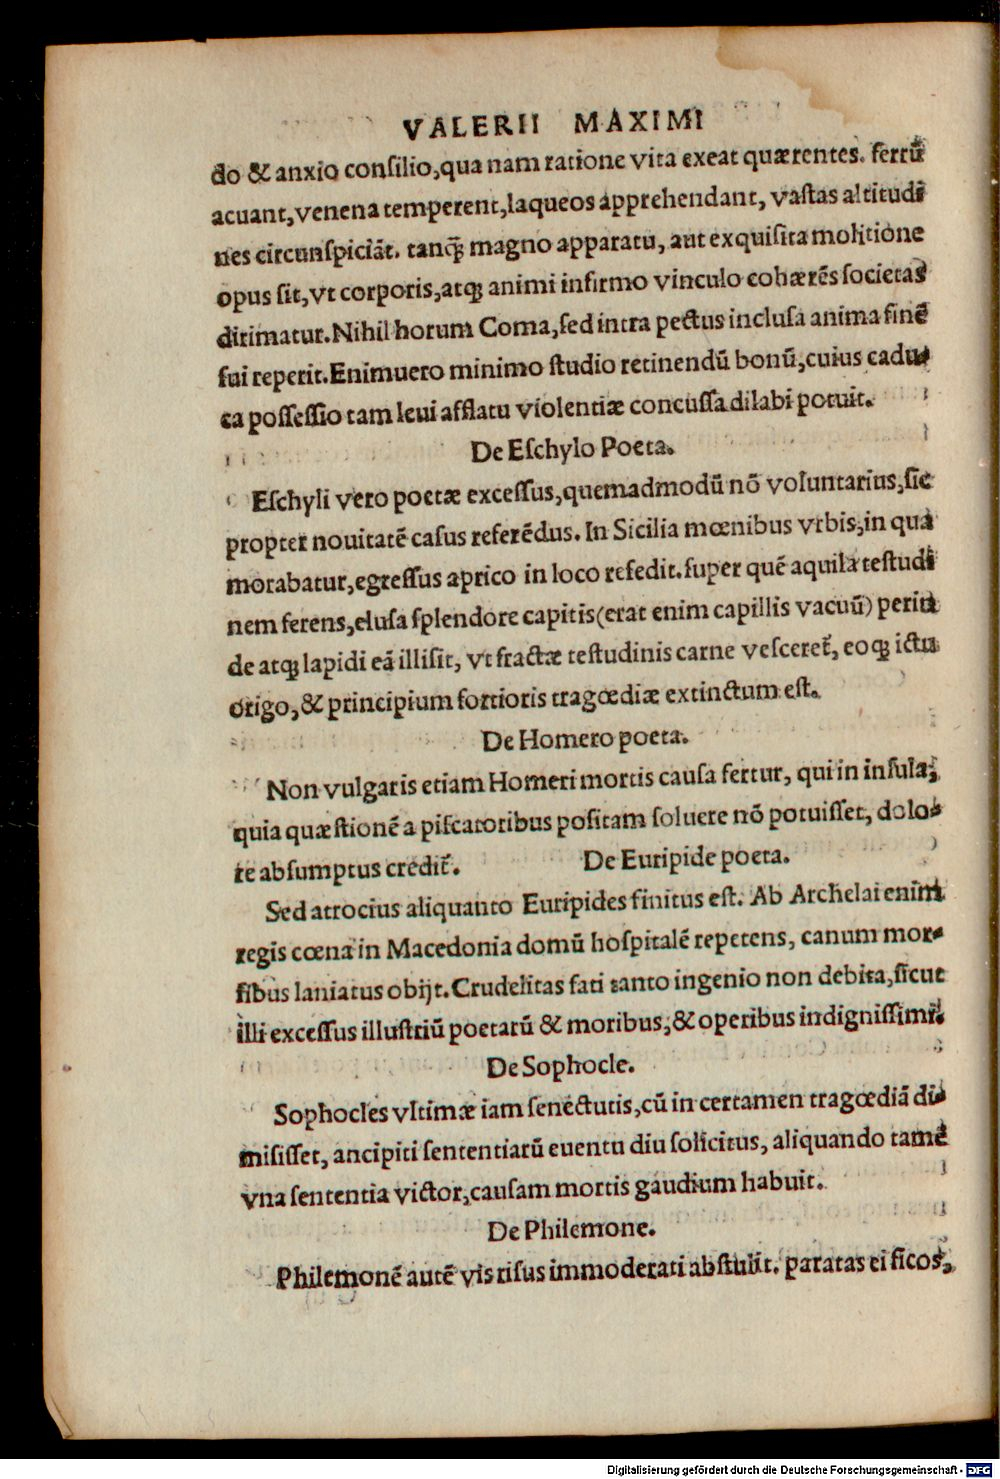 VALERII MAXIMI
do & anxio conſilio,qua nam ratione vita exeat quærentes. ferrũ
acuant,venena temperent,laqueos apprehendant, vaſtas altitudi
nes circunſpiciãt. tanq̃ magno apparatu, aut exquiſita molitione
opus ſit,vt corporis,atq; animi infirmo vinculo cohærẽs ſocietas
dirimatur.Nihil horum Coma,ſed intra pectus incluſa anima finẽ
ſui reperit.Enimuero minimo ſtudio retinendũ bonũ,cuius cadu-
ca poſſeſſio tam leui afflatu violentiæ concuſſa dilabi potuit.
De Eſchylo Poeta.
Eſchyli vero poetæ exceſſus,quemadmodũ nõ voluntarius,ſic
propter nouitatẽ caſus referẽdus. In Sicilia mœnibus vrbis,in qua
morabatur,egreſſus aprico in loco reſedit.ſuper quẽ aquila teſtudi
nem ferens,eluſa ſplendore capitis(erat enim capillis vacuũ) perin
de atq; lapidi eã illiſit, vt fractæ teſtudinis carne veſceret̃, eoq; ictu
origo,& principium fortioris tragœdiæ extinctum eſt.
De Homero poeta.
Non vulgaris etiam Homeri mortis cauſa fertur, qui in inſula,
quia quæſtionẽ a piſcatoribus poſitam ſoluere nõ potuiſſet, dolo-
re abſumptus credit̃. De Euripide poeta.
Sed atrocius aliquanto Euripides finitus eſt. Ab Archelai enim
regis cœna in Macedonia domũ hoſpitalẽ repetens, canum mor-
ſibus laniatus obijt.Crudelitas fati tanto ingenio non debita,ſicut
illi exceſſus illuſtriũ poetarũ & moribus,& operibus indigniſſimi.
De Sophocle.
Sophocles vltimæ iam ſenectutis,cũ in certamen tragœdiã di-
miſiſſet, ancipiti ſententiarũ euentu diu ſolicitus, aliquando tamẽ
vna ſententia victor,cauſam mortis gaudium habuit.
De Philemone.
Philemonẽ autẽ vis riſus immoderati abſtulit. paratas ei ficos,
Digitalisierung gefördert durch die Deutsche Forschungsgemeinschaft - DFG